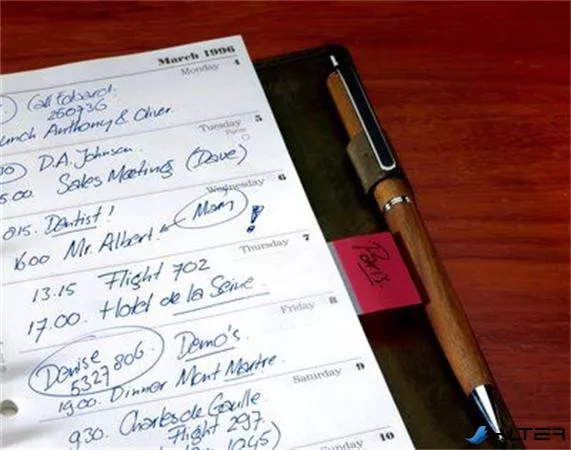 March 1996
Monday 4
Call Edward.
250736
Lunch Anthony & Oliver.
Tuesday 5
D.A. Johnson.
Sales Meeting (Dave)
Wednesday 6
815. Dentist!
Mom
1600 Mr. Albert. !
Thursday 7
13.15 Flight 702
17.00. Hotel de la Seine
Friday 8
Denise
5327806.
Demo's.
1900. Dinner Mont Martre.
Saturday 9
930. Charles de Gaulle.
Flight 297.
1245)
Sunday 10
Paris.
ALTER